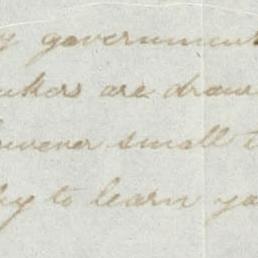 y government
are draw
however small t
to learn yo